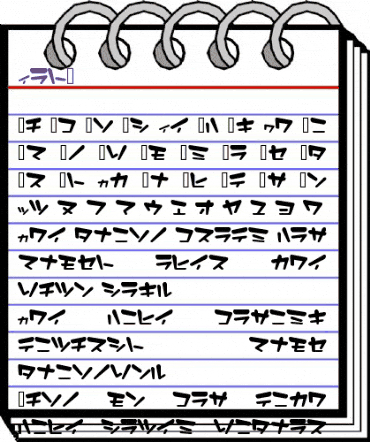 ィラト▯
▯チ ▯コ ▯ソ ▯シ ィイ ▯ハ ▯キ ヮワ ▯ニ
▯マ ▯ノ ▯リ ▯モ ▯ミ ▯ラ ▯セ ▯タ
▯ス ▯ト ヵカ ▯ナ ▯ヒ ▯テ ▯サ ▯ン
ッツ ヌ フ ア ウ エ オ ヤ ユ ヨ ワ
ヵワイ タナニソノ コスラテミ ハラサ
マナモセト ラヒイス カワイ
リチツン シラキル
ヵワイ ハニヒイ コラサニミキ
テニツチスシト マナモセ
タナニソノリンル
▯チソノ モン コラサ テニカワ
ハニヒイ シラツイミ リニタナラス